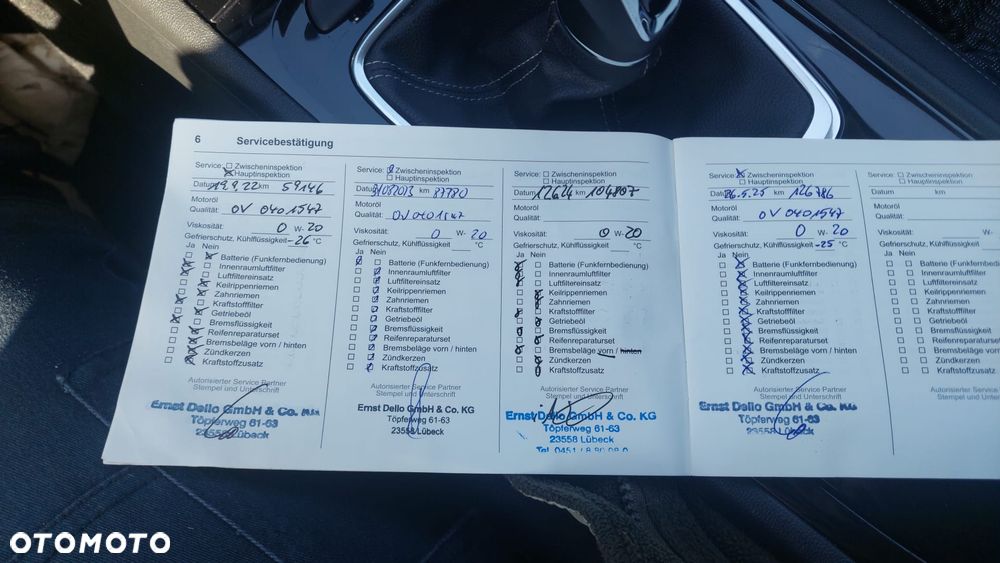 6 Servicebestätigung
Service: Zwischeninspektion
Hauptinspektion
Datum 19.9.22 km 59146
Motoröl
Qualität: OV 0401547
Viskosität: 0 W- 20
Gefrierschutz, Kühlflüssigkeit -26 °C
Ja Nein
Batterie (Funkfernbedienung)
Innenraumluftfilter
Luftfiltereinsatz
Keilrippenriemen
Zahnriemen
Kraftstofffilter
Getriebeöl
Bremsflüssigkeit
Reifenreparaturset
Bremsbeläge vorn / hinten
Zündkerzen
Kraftstoffzusatz
Autorisierter Service Partner
Stempel und Unterschrift
Ernst Dello GmbH & Co. KG
Töpferweg 61-63
23558 Lübeck
Service: Zwischeninspektion
Hauptinspektion
Datum km 87780
Motoröl
Qualität: OV 0401547
Viskosität: 0 W- 20
Gefrierschutz, Kühlflüssigkeit °C
Ja Nein
Batterie (Funkfernbedienung)
Innenraumluftfilter
Luftfiltereinsatz
Keilrippenriemen
Zahnriemen
Kraftstofffilter
Getriebeöl
Bremsflüssigkeit
Reifenreparaturset
Bremsbeläge vorn / hinten
Zündkerzen
Kraftstoffzusatz
Autorisierter Service Partner
Stempel und Unterschrift
Ernst Dello GmbH & Co. KG
Töpferweg 61-63
23558 Lübeck
Service: Zwischeninspektion
Hauptinspektion
Datum 12624 km 104807
Motoröl
Qualität: OV 0401547
Viskosität: 0 W- 20
Gefrierschutz, Kühlflüssigkeit °C
Ja Nein
Batterie (Funkfernbedienung)
Innenraumluftfilter
Luftfiltereinsatz
Keilrippenriemen
Zahnriemen
Kraftstofffilter
Getriebeöl
Bremsflüssigkeit
Reifenreparaturset
Bremsbeläge vorn / hinten
Zündkerzen
Kraftstoffzusatz
Autorisierter Service Partner
Stempel und Unterschrift
Ernst Dello GmbH & Co. KG
Töpferweg 61-63
23558 Lübeck
Tel. 0451 /
Service: Zwischeninspektion
Hauptinspektion
Datum 26.5.25 km 126786
Motoröl
Qualität: OV 0401547
Viskosität: 0 W- 20
Gefrierschutz, Kühlflüssigkeit -25 °C
Ja Nein
Batterie (Funkfernbedienung)
Innenraumluftfilter
Luftfiltereinsatz
Keilrippenriemen
Zahnriemen
Kraftstofffilter
Getriebeöl
Bremsflüssigkeit
Reifenreparaturset
Bremsbeläge vorn / hinten
Zündkerzen
Kraftstoffzusatz
Autorisierter Service Partner
Stempel und Unterschrift
Ernst Dello GmbH & Co. KG
Töpferweg 61-63
23558 Lübeck
Service: Zwischeninspektion
Hauptinspektion
Datum km
Motoröl
Qualität:
Viskosität: W-
Gefrierschutz, Kühlflüssigkeit
Ja Nein
Batterie (Funkfernbed
Innenraumluftfilter
Luftfiltereinsatz
Keilrippenriemen
Zahnriemen
Kraftstofffilter
Getriebeöl
Bremsflüssigkeit
Reifenreparaturset
Bremsbeläge vorn
Zündkerzen
Kraftstoffzusatz
Autorisierter Service
Stempel und Unter
OTOMOTO